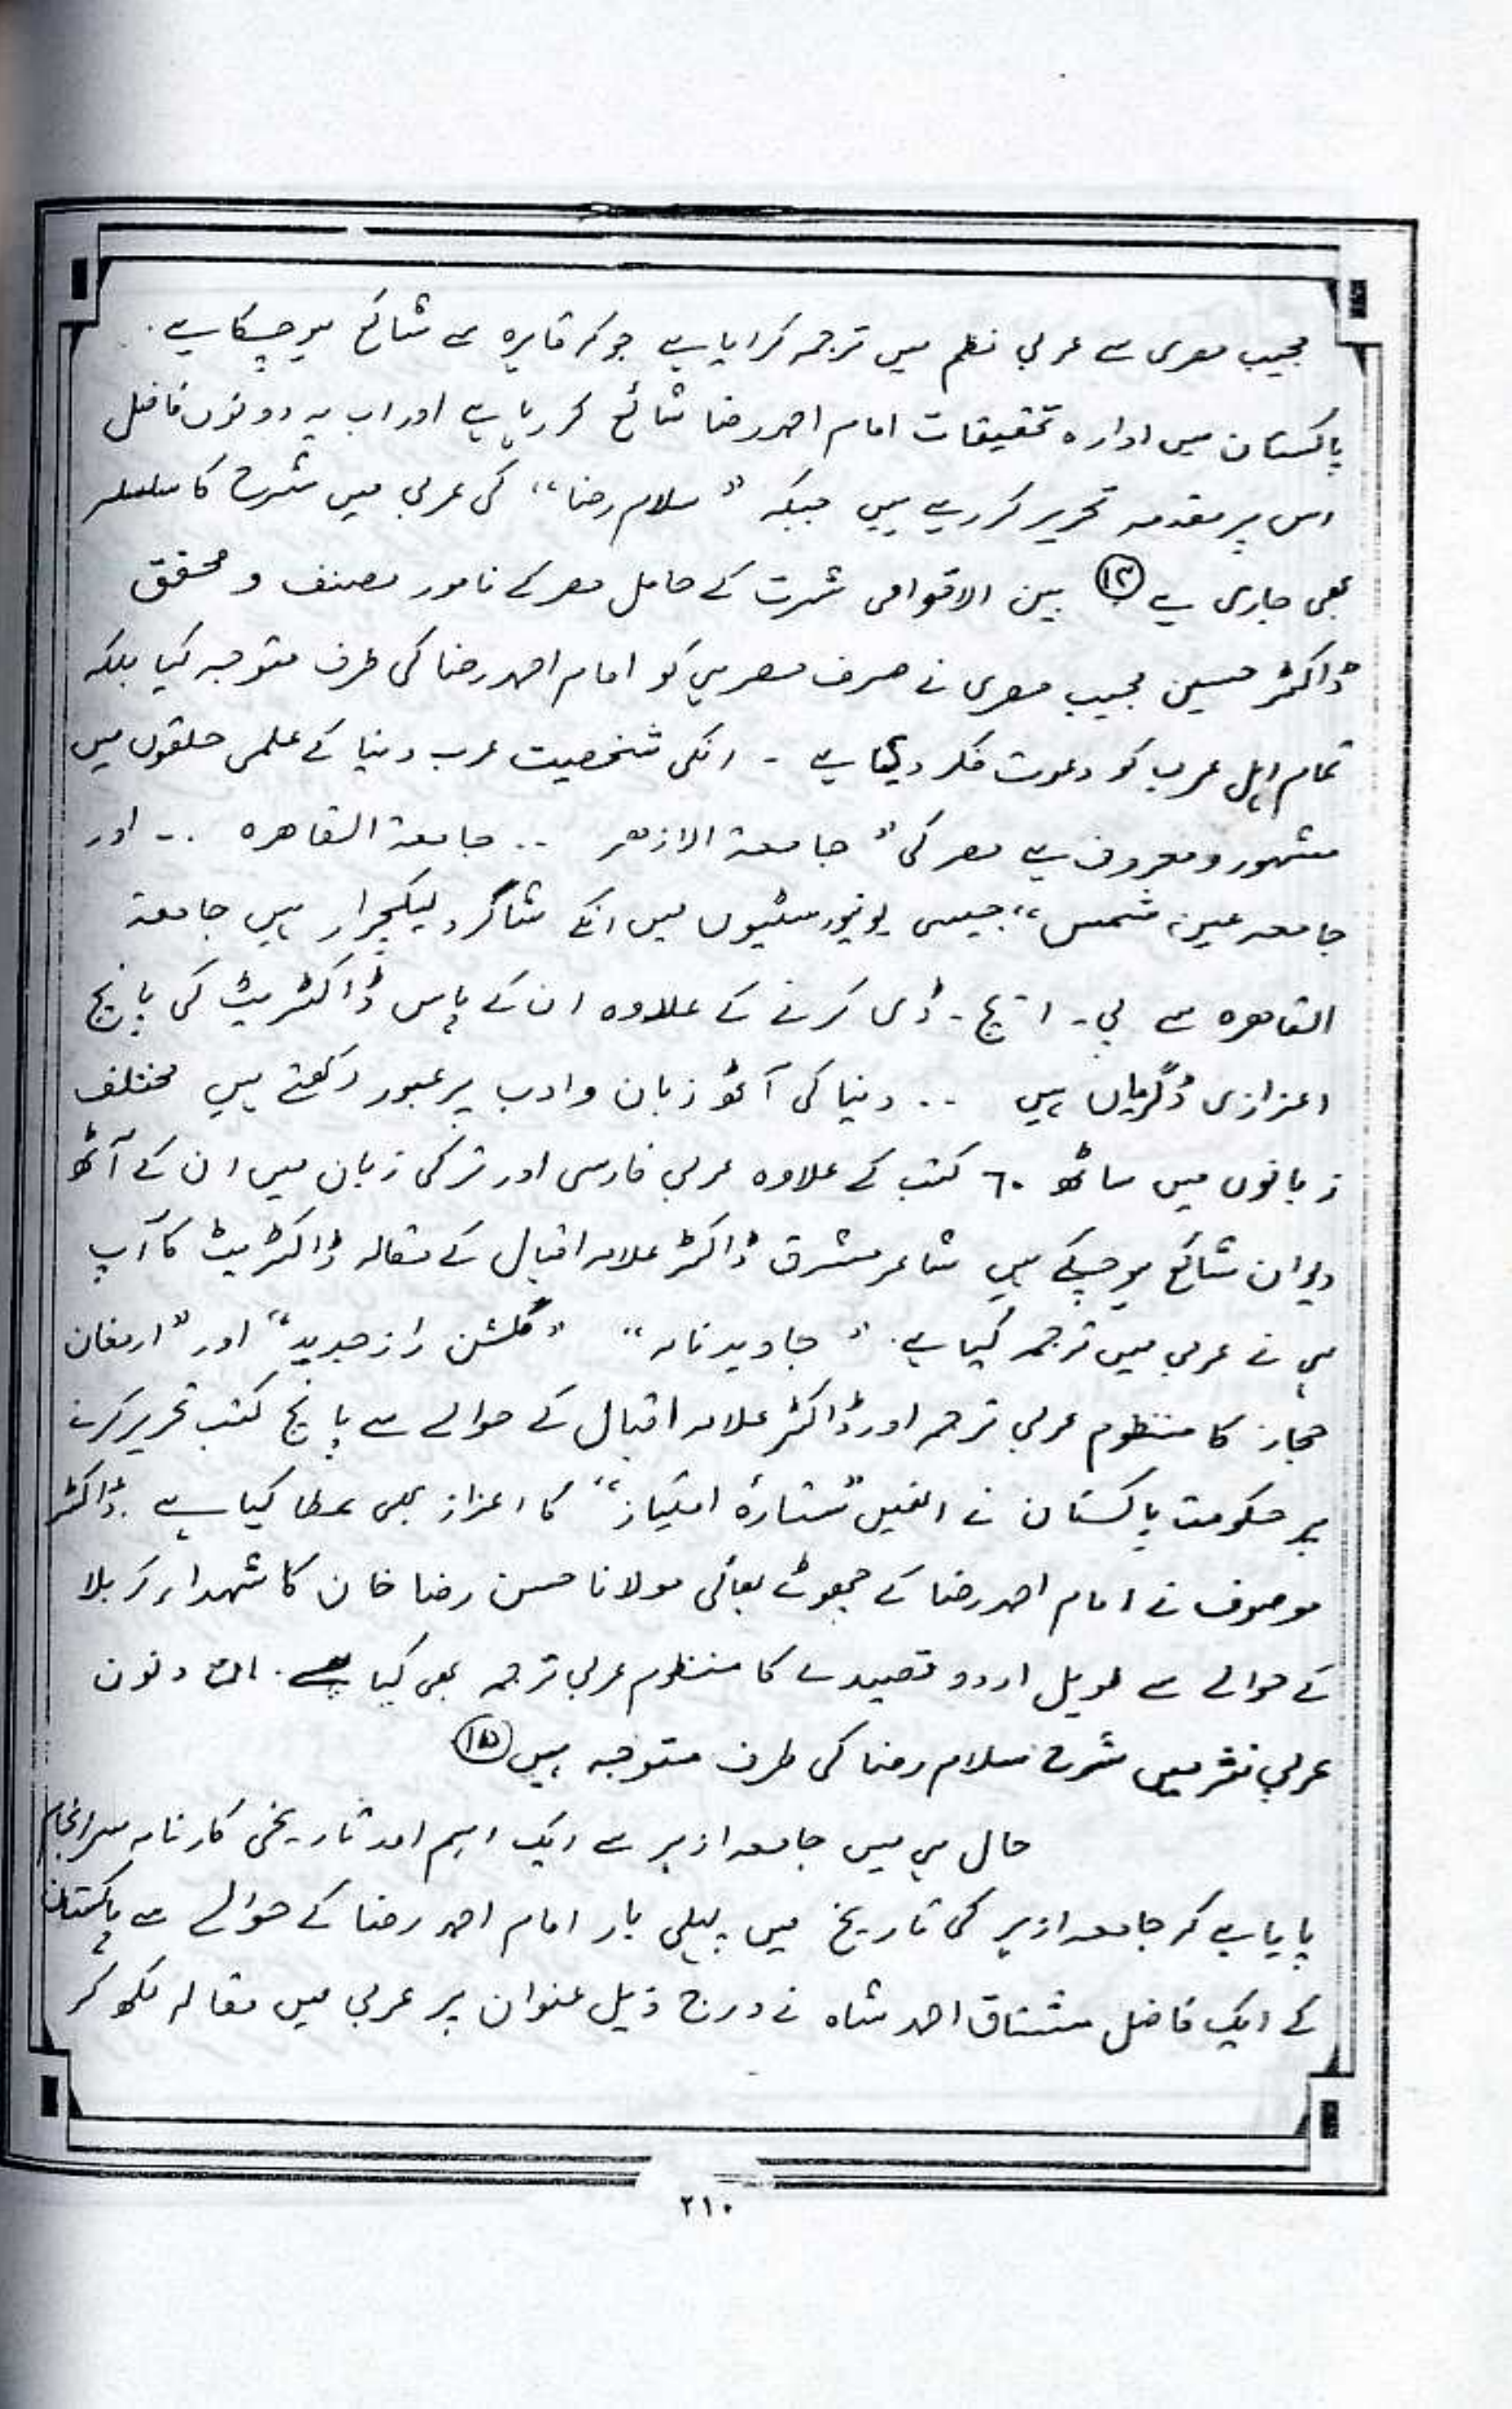 مجیب مصری سے عربی نظم میں ترجمہ کرایا ہے جو کہ قاہرہ سے شائع ہو چکا ہے.
پاکستان میں ادارہ تحقیقات امام احمد رضا شائع کر رہا ہے اور اب یہ دونوں فاضل
اس پر مقدمہ تحریر کر رہے ہیں جبکہ "سلام رضا" کی عربی میں شرح کا سلسلہ
بھی جاری ہے بین الاقوامی شہرت کے حامل مصر کے نامور مصنف و محقق
ڈاکٹر حسین مجیب مصری نے صرف مصر ہی کو امام احمد رضا کی طرف متوجہ کیا بلکہ
تمام اہل عرب کو دعوت فکر دی ہے - انکی شخصیت عرب دنیا کے علمی حلقوں میں
مشہور و معروف ہے مصر کی "جامعۃ الازھر .. جامعۃ القاھرہ .. اور
جامعہ عین شمس" جیسی یونیورسٹیوں میں انکے شاگرد لیکچرار ہیں جامعۃ
القاھرہ سے پی۔ ایچ۔ ڈی کرنے کے علاوہ ان کے پاس ڈاکٹریٹ کی پانچ
اعزازی ڈگریاں ہیں .. دنیا کی آٹھ زبان و ادب پر عبور رکھتے ہیں مختلف
زبانوں میں ساٹھ ٦٠ کتب کے علاوہ عربی فارسی اور ترکی زبان میں ان کے آٹھ
دیوان شائع ہو چکے ہیں شاعر مشرق ڈاکٹر علامہ اقبال کے مقالہ ڈاکٹریٹ کا آپ
ہی نے عربی میں ترجمہ کیا ہے. "جاوید نامہ" "گلشن راز جدید" اور "ارمغان
حجاز کا منظوم عربی ترجمہ اور ڈاکٹر علامہ اقبال کے حوالے سے پانچ کتب تحریر کرنے
پر حکومت پاکستان نے انھیں "ستارۂ امتیاز" کا اعزاز بھی عطا کیا ہے. ڈاکٹر
موصوف نے امام احمد رضا کے چھوٹے بھائی مولانا حسن رضا خان کا شہداء کربلا
کے حوالے سے طویل اردو قصیدے کا منظوم عربی ترجمہ بھی کیا ہے. ان دنوں
عربی نثر میں شرح سلام رضا کی طرف متوجہ ہیں (۱۵)
حال ہی میں جامعہ ازہر سے ایک اہم اور تاریخی کارنامہ سرانجام
پایا ہے کہ جامعہ ازہر کی تاریخ میں پہلی بار امام احمد رضا کے حوالے سے پاکستان
کے ایک فاضل مشتاق احمد شاہ نے درج ذیل عنوان پر عربی میں مقالہ لکھ کر
۲۱۰